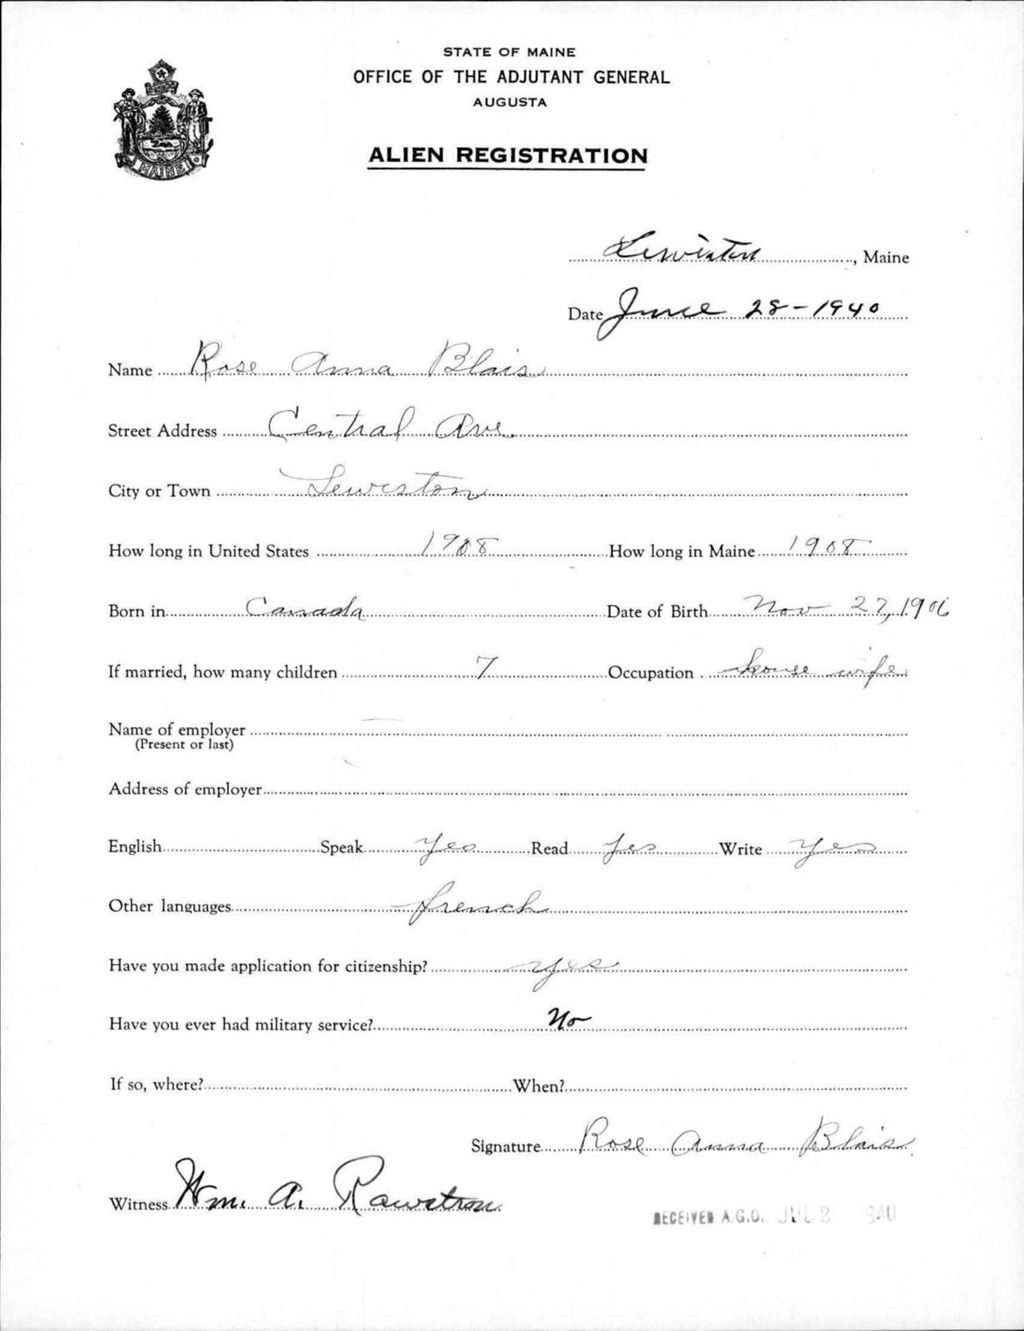 STATE OF MAINE
OFFICE OF THE ADJUTANT GENERAL
AUGUSTA
ALIEN REGISTRATION
MAINE
Lewiston, Maine
Date June 28-1940
Name Rose Anna Blais
Street Address Central Ave.
City or Town Lewiston
How long in United States 1908 How long in Maine 1908
Born in Canada Date of Birth Nov 27, 1906
If married, how many children 7 Occupation house wife
Name of employer
(Present or last)
Address of employer
English Speak yes Read yes Write yes
Other languages french
Have you made application for citizenship? yes
Have you ever had military service? No
If so, where? When?
Signature Rose Anna Blais
Witness Wm. A. Rawstron
RECEIVED A.G.O. JUL 2 1940